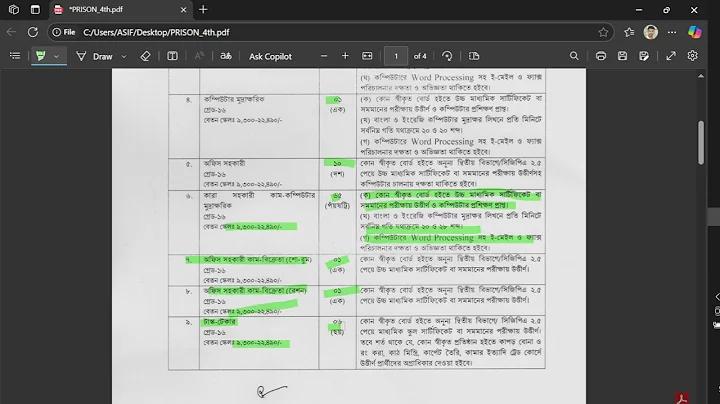 *PRISON_4th.pdf
File C:/Users/ASIF/Desktop/PRISON_4th.pdf
Draw Ask Copilot 1 of 4
(ঘ) কম্পিউটারে Word Processing সহ ই-মেইল ও ফ্যাক্স
পরিচালনার দক্ষতা ও অভিজ্ঞতা থাকিতে হইবে।
৪. কম্পিউটার মুদ্রাক্ষরিক
গ্রেড-১৬
বেতন স্কেলঃ ৯,৩০০-২২,৪৯০/-
০১
(এক)
(ক) কোন স্বীকৃত বোর্ড হইতে উচ্চ মাধ্যমিক সার্টিফিকেট বা
সমমানের পরীক্ষায় উত্তীর্ণ ও কম্পিউটার প্রশিক্ষণ প্রাপ্ত।
(খ) বাংলা ও ইংরেজি কম্পিউটার মুদ্রাক্ষর লিখনে প্রতি মিনিটে
সর্বনিম্ন গতি যথাক্রমে ২০ ও ২০ শব্দ।
(গ) কম্পিউটারে Word Processing সহ ই-মেইল ও ফ্যাক্স
পরিচালনার দক্ষতা ও অভিজ্ঞতা থাকিতে হইবে।
৫. অফিস সহকারী
গ্রেড-১৬
বেতন স্কেলঃ ৯,৩০০-২২,৪৯০/-
১০
(দশ)
কোন স্বীকৃত বোর্ড হইতে অন্যূন দ্বিতীয় বিভাগে/সিজিপিএ ২.৫
পেয়ে উচ্চ মাধ্যমিক সার্টিফিকেট বা সমমানের পরীক্ষায় উত্তীর্ণসহ
কম্পিউটার চালনায় দক্ষতা থাকিতে হইবে।
৬. কারা সহকারী কাম-কম্পিউটার
মুদ্রাক্ষরিক
গ্রেড-১৬
বেতন স্কেলঃ ৯,৩০০-২২,৪৯০/-
৬৫
(পঁয়ষট্টি)
(ক) কোন স্বীকৃত বোর্ড হইতে উচ্চ মাধ্যমিক সার্টিফিকেট বা
সমমানের পরীক্ষায় উত্তীর্ণ ও কম্পিউটার প্রশিক্ষণ প্রাপ্ত।
(খ) বাংলা ও ইংরেজি কম্পিউটার মুদ্রাক্ষর লিখনে প্রতি মিনিটে
সর্বনিম্ন গতি যথাক্রমে ২০ ও ২৮ শব্দ।
(গ) কম্পিউটারে Word Processing সহ ই-মেইল ও ফ্যাক্স
পরিচালনার দক্ষতা ও অভিজ্ঞতা থাকিতে হইবে।
৭. অফিস সহকারী কাম-বিক্রেতা (শো-রুম)
গ্রেড-১৬
বেতন স্কেলঃ ৯,৩০০-২২,৪৯০/-
০১
(এক)
কোন স্বীকৃত বোর্ড হইতে অন্যূন দ্বিতীয় বিভাগে/সিজিপিএ ২.৫
পেয়ে উচ্চ মাধ্যমিক সার্টিফিকেট বা সমমানের পরীক্ষায় উত্তীর্ণ।
৮. অফিস সহকারী কাম-বিক্রেতা (রেশন)
গ্রেড-১৬
বেতন স্কেলঃ ৯,৩০০-২২,৪৯০/-
০১
(এক)
কোন স্বীকৃত বোর্ড হইতে অন্যূন দ্বিতীয় বিভাগে/সিজিপিএ ২.৫
পেয়ে উচ্চ মাধ্যমিক সার্টিফিকেট বা সমমানের পরীক্ষায় উত্তীর্ণ।
৯. টাস্ক-টেকার
গ্রেড-১৬
বেতন স্কেলঃ ৯,৩০০-২২,৪৯০/-
০৬
(ছয়)
কোন স্বীকৃত বোর্ড হইতে অন্যূন দ্বিতীয় বিভাগে/সিজিপিএ ২.৫
পেয়ে মাধ্যমিক স্কুল সার্টিফিকেট বা সমমানের পরীক্ষায় উত্তীর্ণ।
তবে শর্ত থাকে যে, কোন স্বীকৃত প্রতিষ্ঠান হইতে কাপড় বোনা ও
রং করা, কাঠ মিস্ত্রি, কার্পেট তৈরি, কামার ইত্যাদি ট্রেড কোর্সে
উত্তীর্ণ প্রার্থীদের অগ্রাধিকার দেওয়া হইবে।